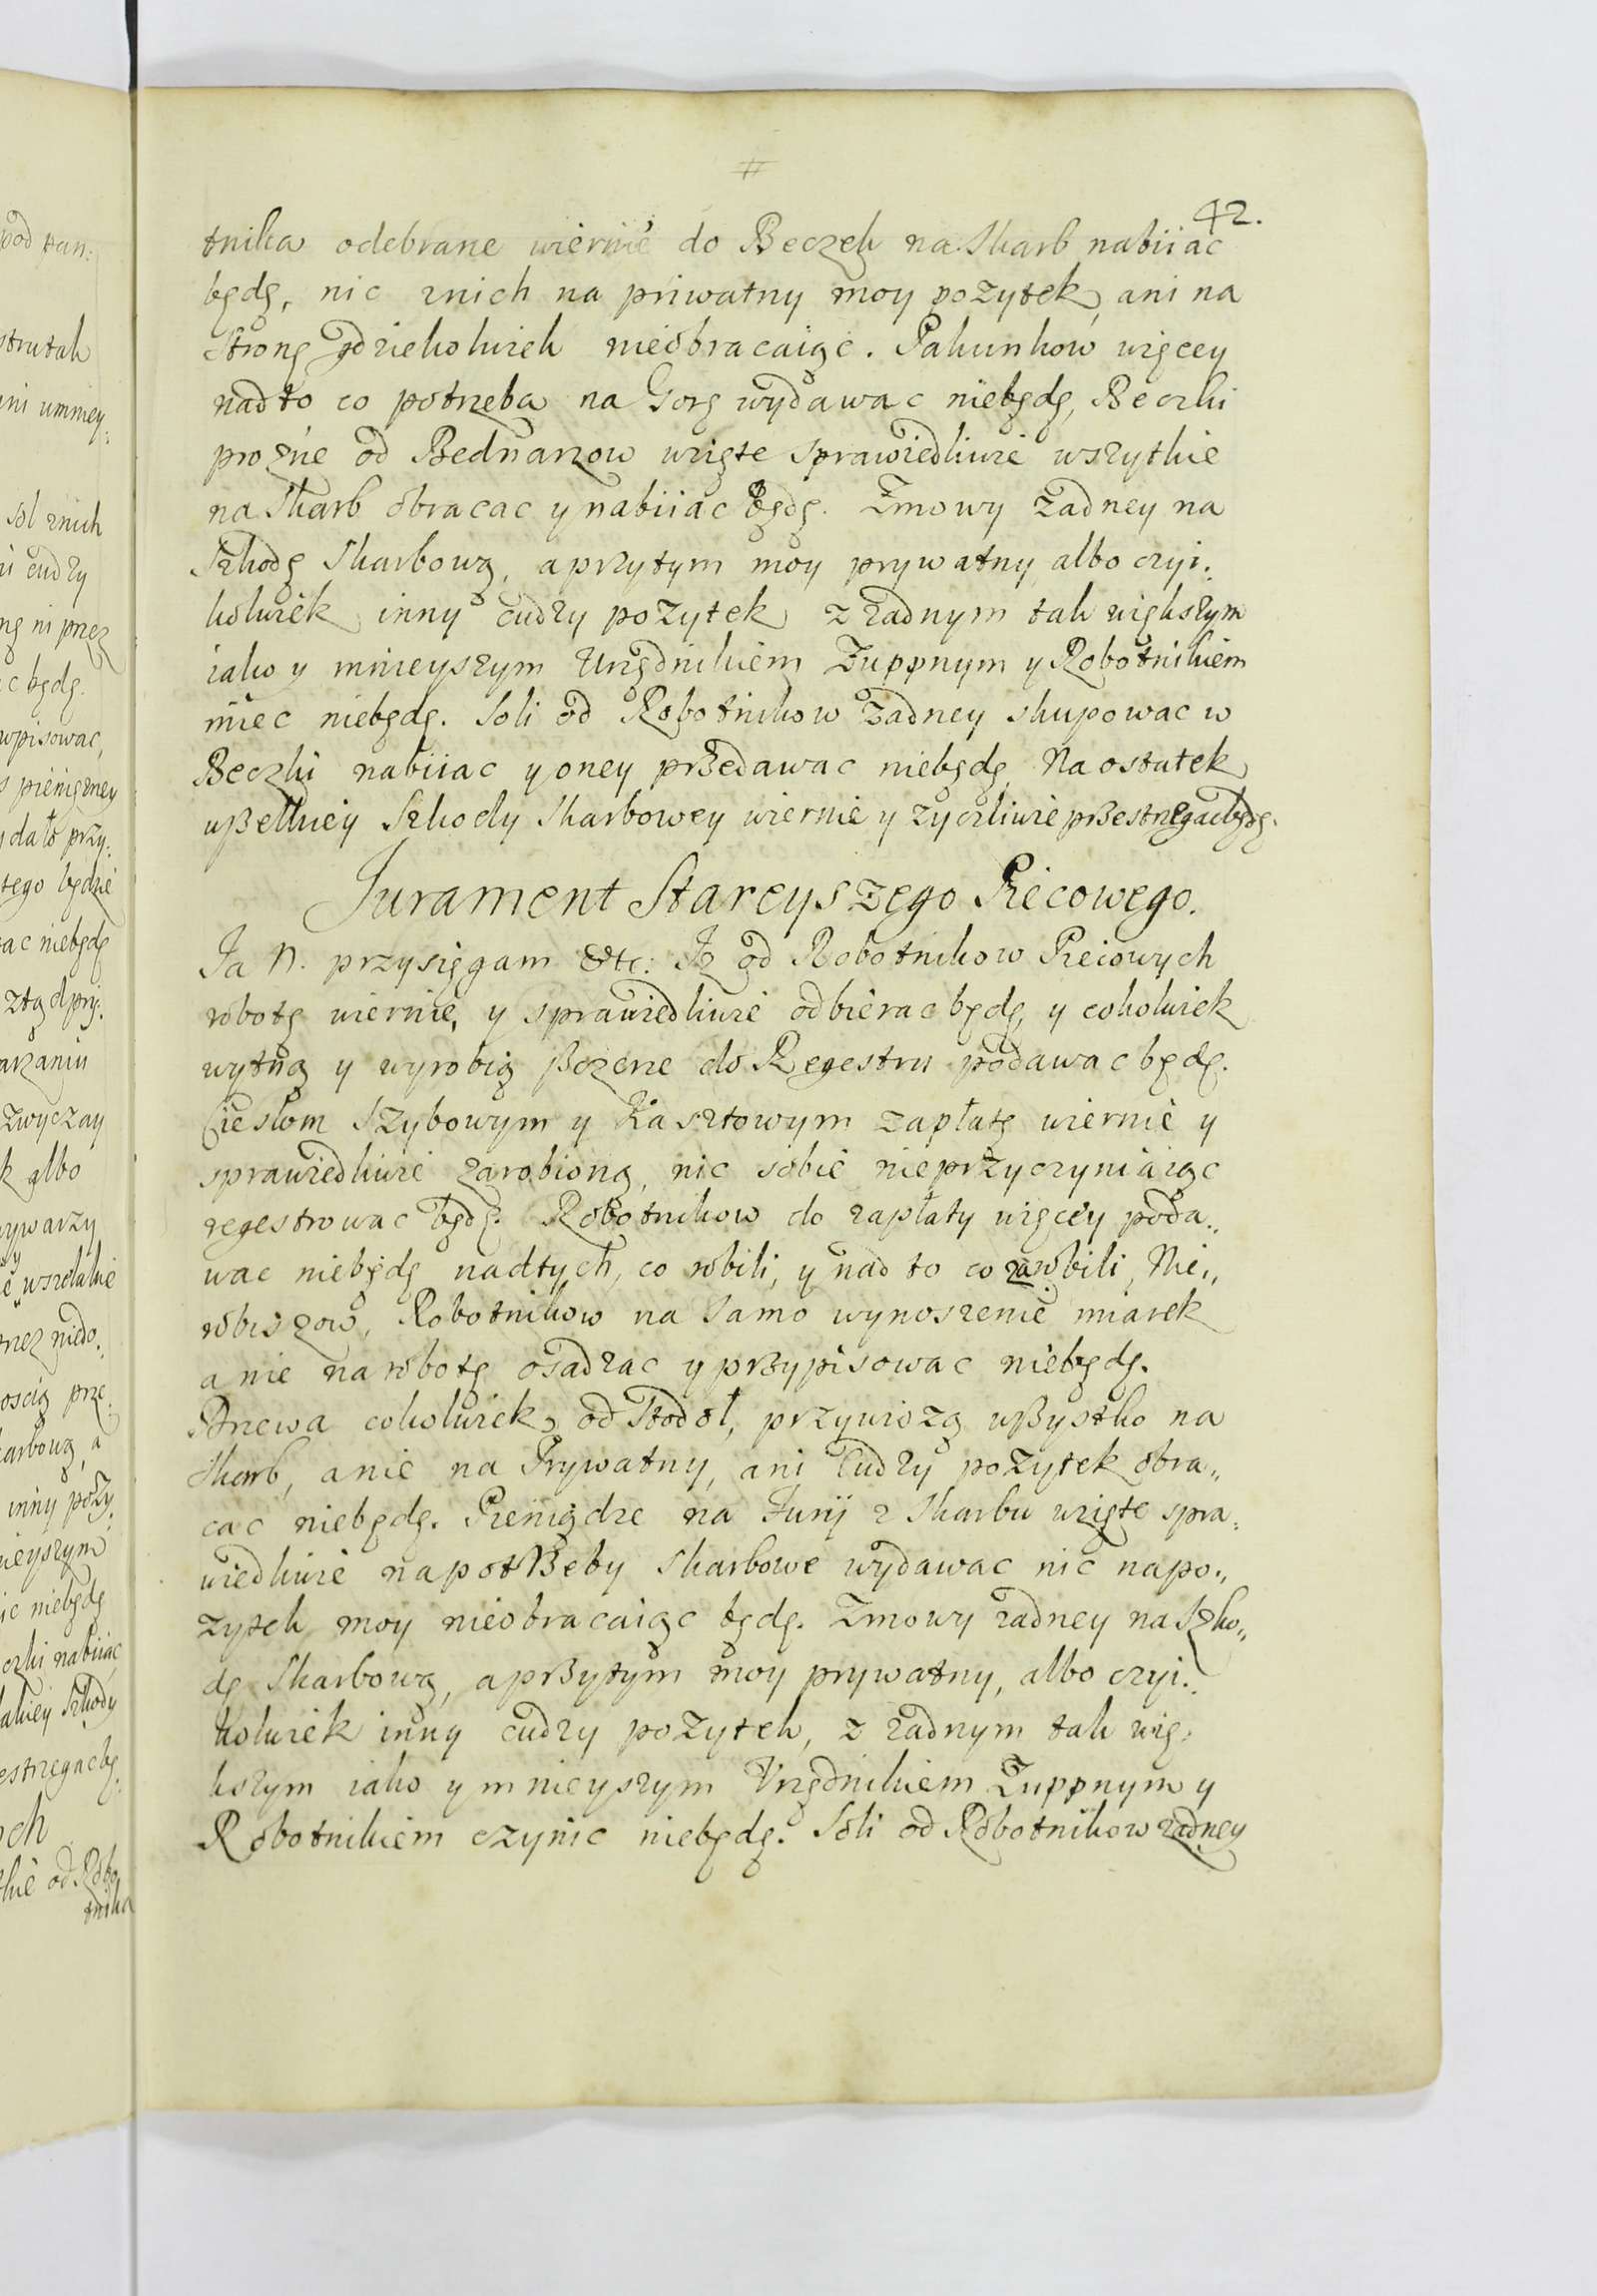 42.
tnika odebrane wiernie do Beczek na Skarb nabiiac
będę, nic znich na priwatny moy pozytek, ani na
Stronę gdziekolwiek nieobracaiąc. Pakunkow więcey
nadto co potrzeba na Gorę wydawac niebędę, Beczki
prozne od Bednarzow wzięte sprawiedliwie wszytkie
na Skarb obracac y nabiiac będę. Zmowy zadney na
Szkodę Skarbową, aprzytym moy prywatny albo czyi:
kolwiek inny cudzy pozytek z zadnym tak większym
iako y mnieyszym Urzędnikiem Zuppnym y Robotnikiem
miec niebędę. Soli od Robotnikow zadney skupowac w
Beczki nabiiac y oney przedawac niebędę Na ostatek
wßelkiey Szkody Skarbowey wiernie y zyczliwie pßestrzegac będę.
Jurament Stareyszego Piecowego.
Ja N. przysięgam &tc: Iz od Robotnikow Piecowych
robotę wiernie, y sprawiedliwie odbierac będę, y cokolwiek
wytną y wyrobią ßczerze do Regestru podawac będę.
Cieslom Szybowym y Kasztowym zapłatę wiernie y
sprawiedliwie zarobioną, nic sobie nieprzyczyniaiąc
regestrowac będę. Robotnikow do zapłaty więcey poda„
wac niebędę nadtych, co robili, y nad to co zarobili, Nie„
robiszow, Robotnikow na samo wynoszenie miarek
a nie na robotę osadzac y pßypisowac niebędę.
Drzewa cokolwiek od Stodoł, przywiozą wßystko na
Skarb, anie na Prywatny, ani Cudzy pozytek obra„
cac niebędę. Pieniądze na Furij z Skarbu wzięte spra„
wiedliwie napotßeby Skarbowe wydawac nic napo„
zytek moy nieobracaiąc będę. Zmowy zadney na Szko„
dę Skarbową, apßytym moy prywatny, albo czyi:
kolwiek inny cudzy pozytek, z zadnym tak wię:
kszym iako y mnieyszym Urzędnikiem Zuppnym y
Robotnikiem czynic niebędę. Soli od Robotnikow zadney